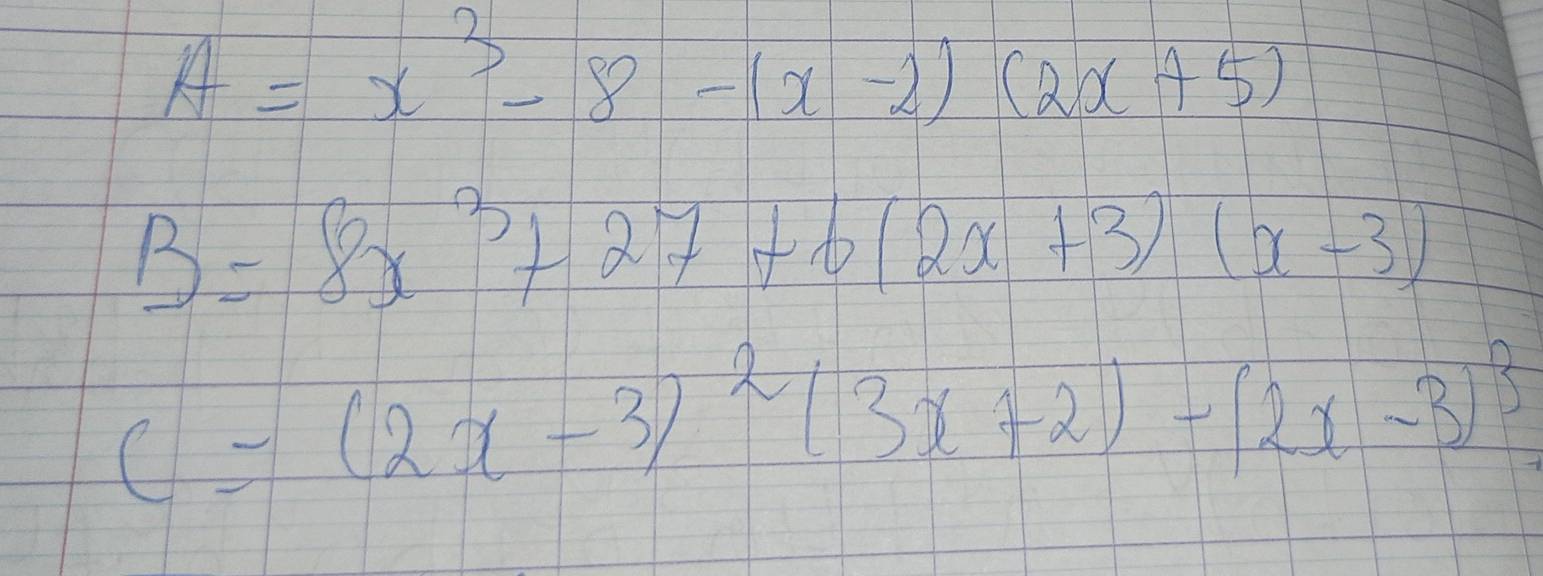 A = x³ - 8 - (x - 2) (2x + 5)
B = 8x³ + 27 + 6(2x + 3) (x - 3)
C = (2x - 3)² (3x + 2) - (2x - 3)³